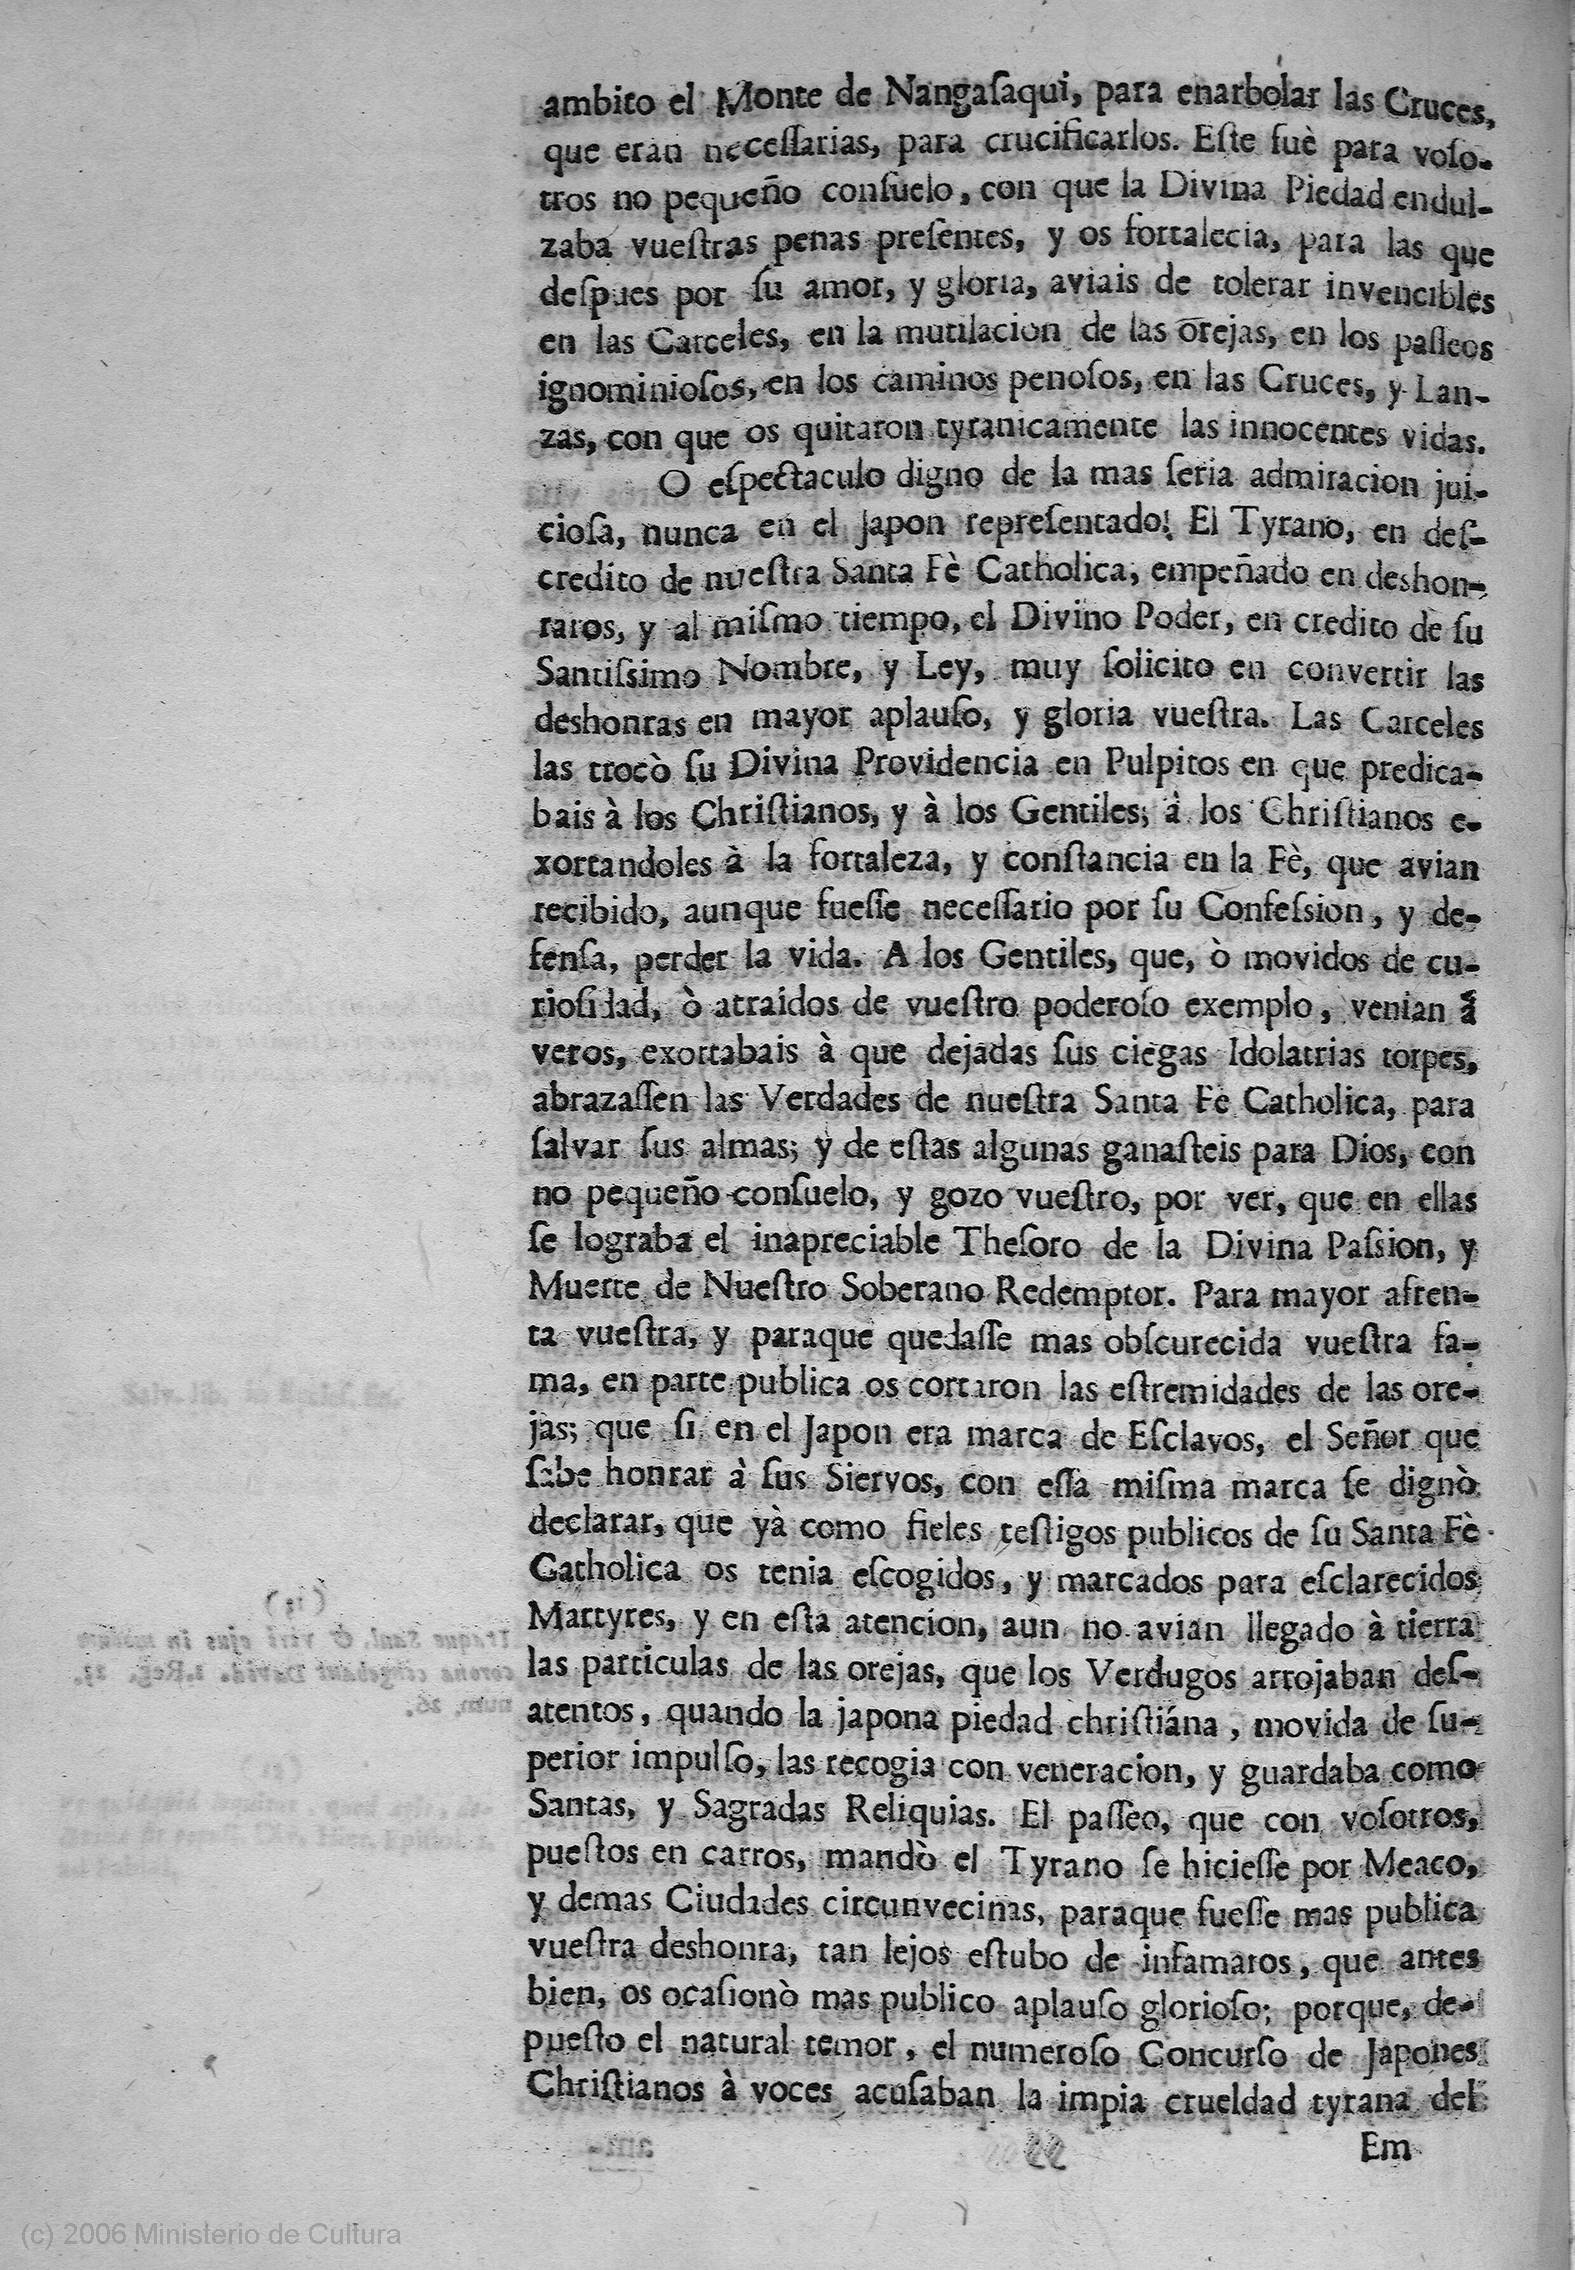 ambito el Monte de Nangaſaqui, para enarbolar las Cruces,
que eran neceſſarias, para crucificarlos. Eſte fuè para voſo-
tros no pequeño conſuelo, con que la Divina Piedad endul-
zaba vueſtras penas preſentes, y os fortalecia, para las que
deſpues por ſu amor, y gloria, aviais de tolerar invencibles
en las Carceles, en la mutilacion de las orejas, en los paſſeos
ignominioſos, en los caminos penoſos, en las Cruces, y Lan-
zas, con que os quitaron tyranicamente las innocentes vidas.
O eſpectaculo digno de la mas ſeria admiracion jui-
cioſa, nunca en el Japon repreſentado! El Tyrano, en deſ-
credito de nueſtra Santa Fè Catholica, empeñado en deshon-
raros, y al miſmo tiempo, el Divino Poder, en credito de ſu
Santiſsimo Nombre, y Ley, muy ſolicito en convertir las
deshonras en mayor aplauſo, y gloria vueſtra. Las Carceles
las trocò ſu Divina Providencia en Pulpitos en que predica-
bais à los Chriſtianos, y à los Gentiles; à los Chriſtianos e-
xortandoles à la fortaleza, y conſtancia en la Fè, que avian
recibido, aunque fueſſe neceſſario por ſu Confeſsion, y de-
fenſa, perder la vida. A los Gentiles, que, ò movidos de cu-
rioſidad, ò atraidos de vueſtro poderoſo exemplo, venian à
veros, exortabais à que dejadas ſus ciegas Idolatrias torpes,
abrazaſſen las Verdades de nueſtra Santa Fè Catholica, para
ſalvar ſus almas; y de eſtas algunas ganaſteis para Dios, con
no pequeño conſuelo, y gozo vueſtro, por ver, que en ellas
ſe lograba el inapreciable Theſoro de la Divina Paſsion, y
Muerte de Nueſtro Soberano Redemptor. Para mayor afren-
ta vueſtra, y paraque quedaſſe mas obſcurecida vueſtra fa-
ma, en parte publica os cortaron las eſtremidades de las ore-
jas; que ſi en el Japon era marca de Eſclavos, el Señor que
ſabe honrar à ſus Siervos, con eſſa miſma marca ſe dignò
declarar, que yà como fieles teſtigos publicos de ſu Santa Fè
Catholica os tenia eſcogidos, y marcados para eſclarecidos
Martyres, y en eſta atencion, aun no avian llegado à tierra
las particulas de las orejas, que los Verdugos arrojaban deſ-
atentos, quando la japona piedad chriſtiána, movida de ſu-
perior impulſo, las recogia con veneracion, y guardaba como
Santas, y Sagradas Reliquias. El paſſeo, que con voſotros,
pueſtos en carros, mandò el Tyrano ſe hicieſſe por Meaco,
y demas Ciudades circunvecinas, paraque fueſſe mas publica
vueſtra deshonra, tan lejos eſtubo de infamaros, que antes
bien, os ocaſionò mas publico aplauſo glorioſo; porque, de-
pueſto el natural temor, el numeroſo Concurſo de Japones
Chriſtianos à voces acuſaban la impia crueldad tyrana del
Em
(c) 2006 Ministerio de Cultura